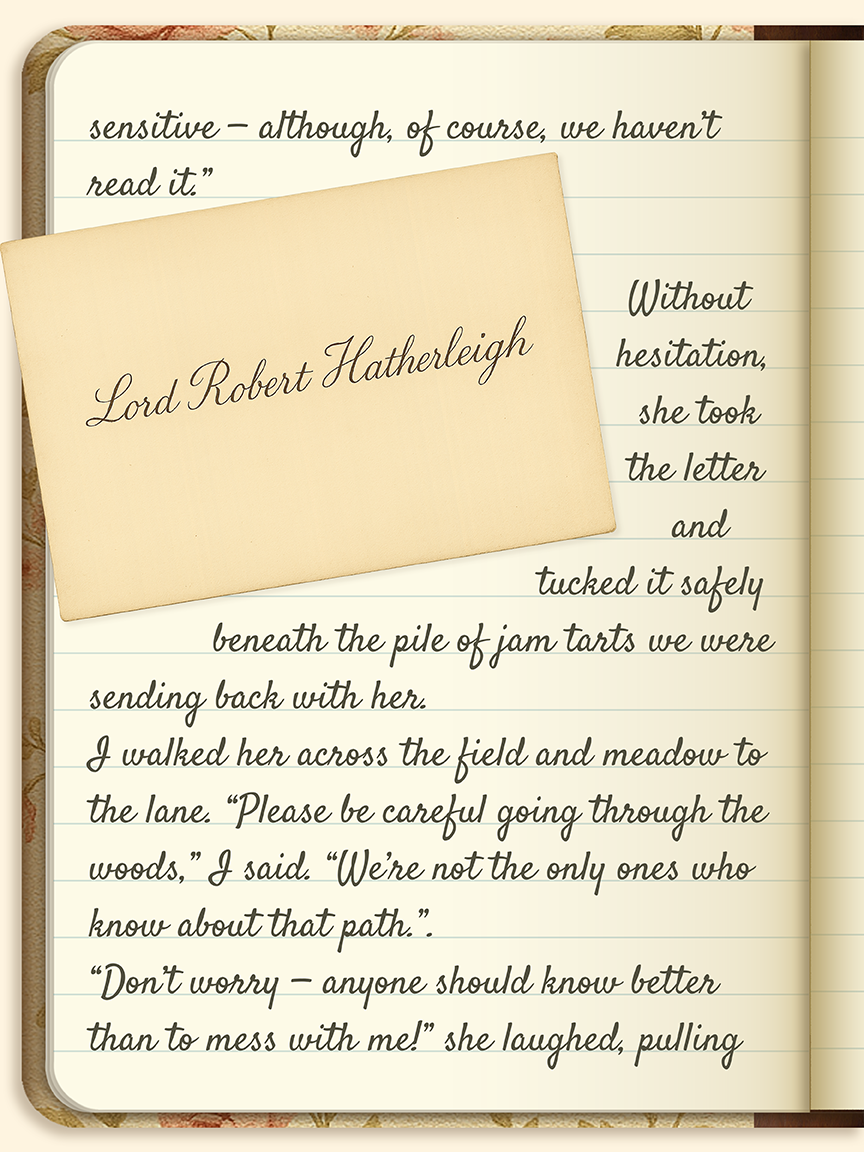 sensitive – although, of course, we haven't
read it.”
Lord Robert Hatherleigh
Without
hesitation,
she took
the letter
and
tucked it safely
beneath the pile of jam tarts we were
sending back with her.
I walked her across the field and meadow to
the lane. “Please be careful going through the
woods,” I said. “We’re not the only ones who
know about that path.”.
“Don’t worry – anyone should know better
than to mess with me!” she laughed, pulling